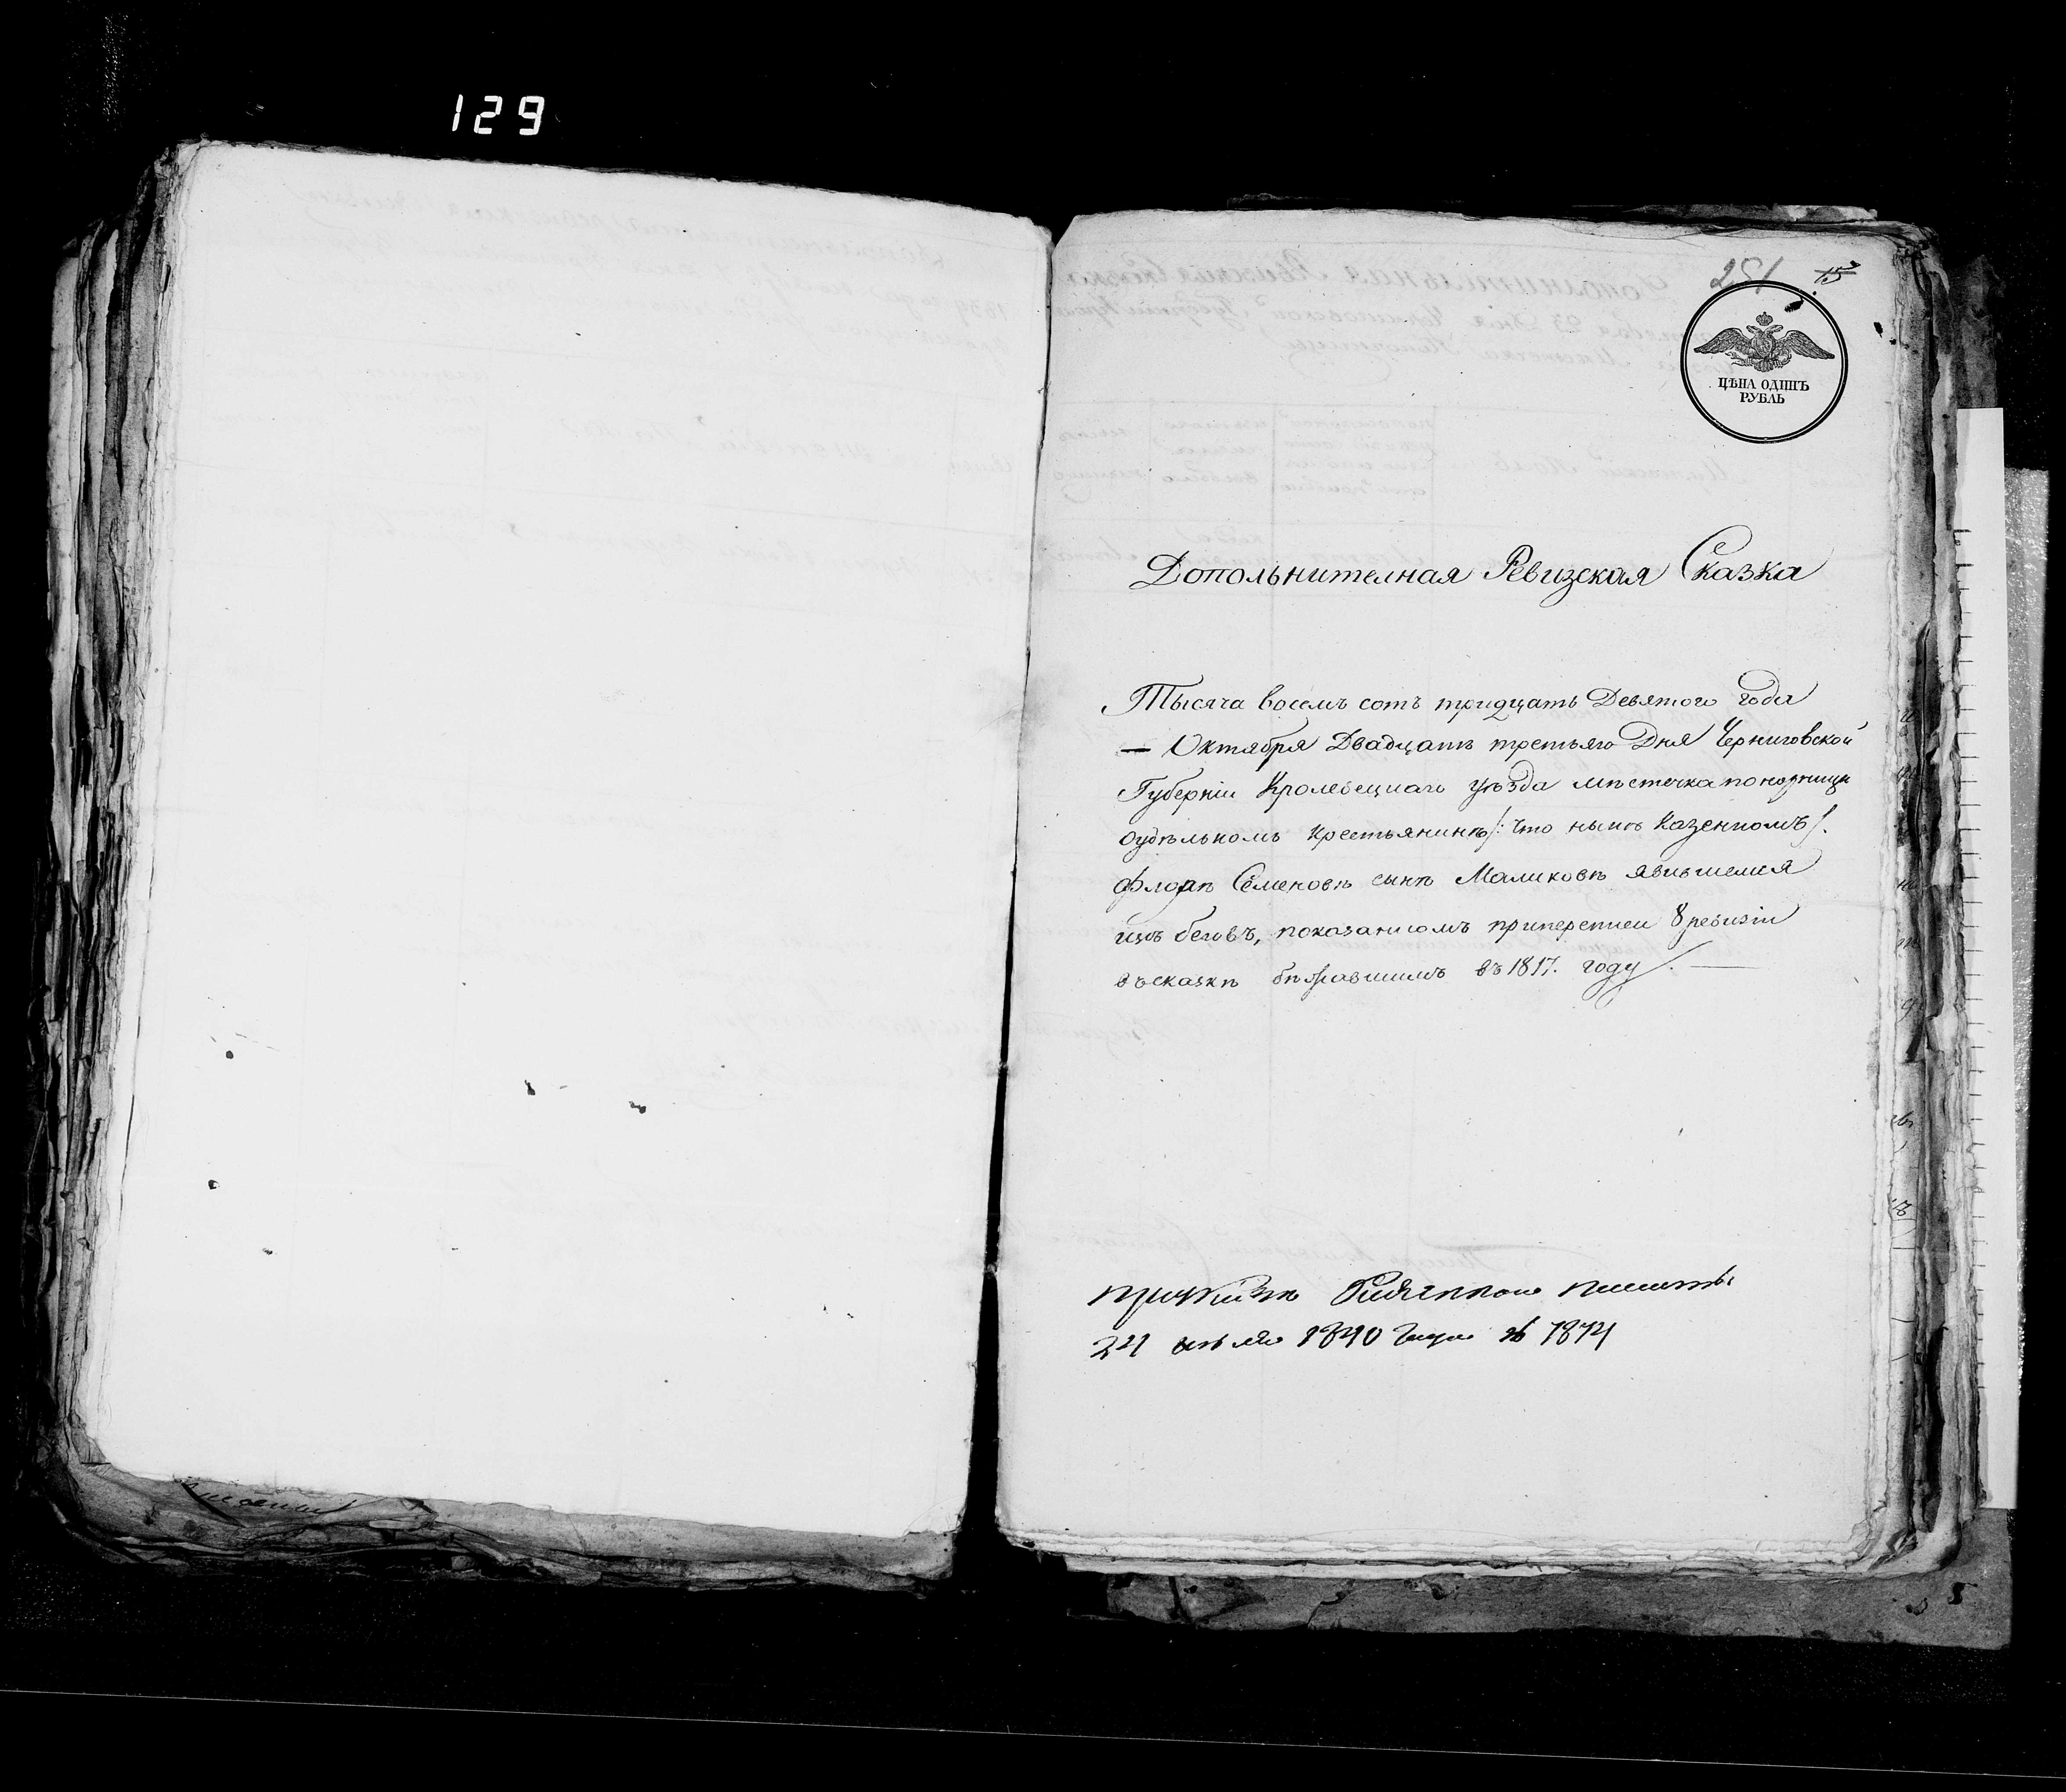 129
281 15
ЦѢНА ОДИНЪ
РУБЛЬ
Допольнителная Ревизская Сказка
Тысяча восемъ сотъ тридцать Девятого года
— Октября Двадцать третьяго Дня Черниговской
Губерніи Кролевецкаго уѣзда мѣстечка понорници
Удѣльномъ крестьянинѣ /: что нынѣ Казенномъ /.
Флорѣ Семеновѣ сынѣ Маликовѣ явившемся
изъ беговъ, показанномъ приперепией 8 ревизіи
въсказкѣ бѣжавшимъ въ 1817. году /. —
24 1840 № 1874